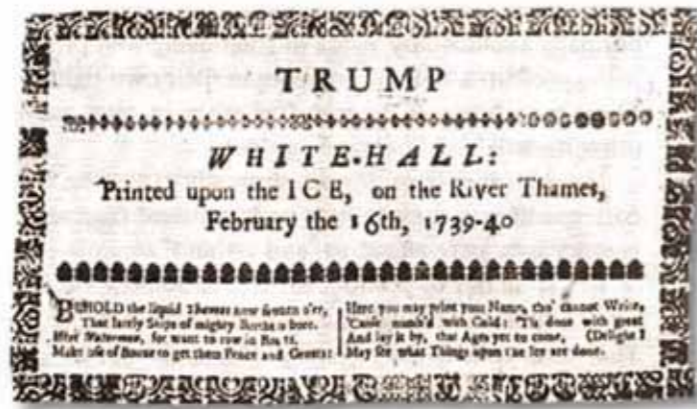 TRUMP
WHITE-HALL:
Printed upon the ICE, on the River Thames,
February the 16th, 1739-40
BEHOLD the liquid Thames now frozen o'er,
That lately Ships of mighty Burthen bore.
Here Watermen, for want to row in Boats,
Make use of Booze to get them Pence and Groats:
Here you may print your Name, tho' cannot Write,
'Cause numb'd with Cold: 'Tis done with great
And lay it by, that Ages yet to come, (Delight:
May see what Things upon the Ice are done.